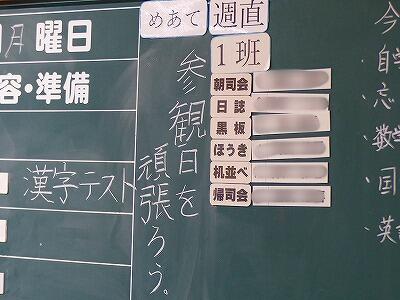 月曜日
容・準備
漢字テスト
めあて
参観日を
頑張ろう。
週直
1班
朝司会
日誌
黒板
ほうき
机並べ
帰司会
今
自学
忘
・数学
・国
・英